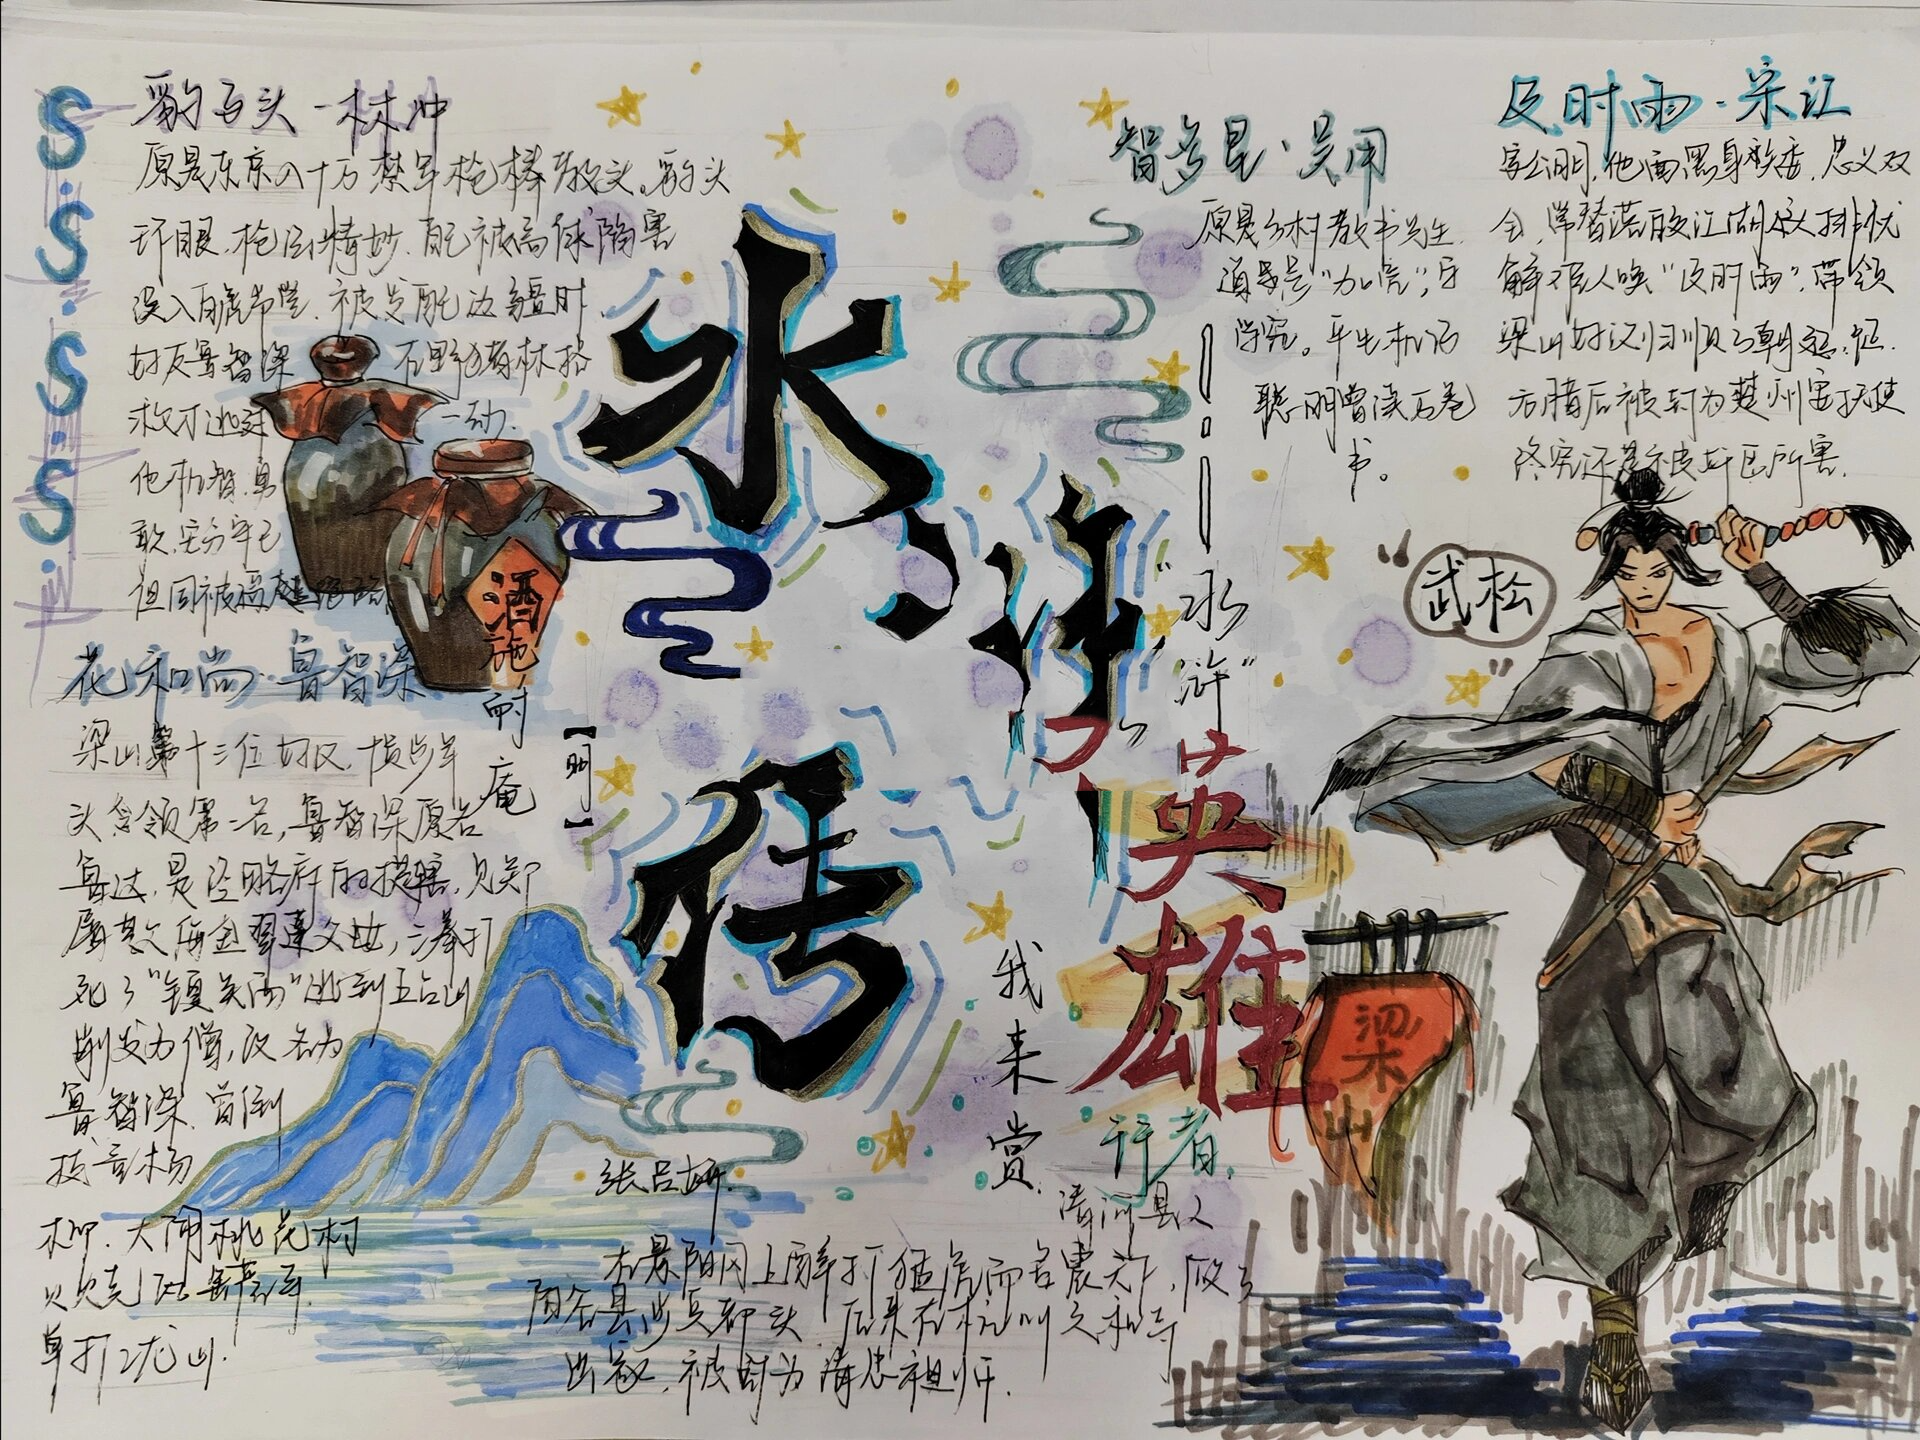 S.S.S.S.
豹子头-林冲
原是东京八十万禁军枪棒教头。豹头
环眼.枪法精妙.被高俅陷害
误入白虎节堂.被发配边疆时
好友鲁智深在野猪林搭
救才逃过一劫.
他机智.勇
敢.安分守己
但同被逼
花和尚·鲁智深
梁山第十三位好汉.
头领第二名,鲁智深原名
鲁达.是经略府的提辖.见郑
屠欺父女,三拳打
死了"镇关西"逃到五台山
削发为僧,改名为
鲁智深.曾倒
拔垂杨
柳.大闹桃花村
火烧瓦罐寺.
单打二龙山.
酒
施耐庵
【明】
水浒传
智多星·吴用
原是乡村教书先生.
道号是"加亮",字
学究。平生机巧
聪明曾读万卷
书。
及时雨·宋江
字公明.他面黑身矮.忠义双
全,常替江湖好汉排忧
解难人唤"及时雨".带领
梁山好汉归顺了朝廷.征
方腊后被封为楚州安抚使
终究还是被奸臣所害.
"武松"
——·——"水浒"
英雄
我来赏.
梁山
行者.
清河县人
在景阳冈上醉打猛虎而名震天下,做了
阳谷县步兵都头.后来在杭州六和寺
出家.被封为清忠祖师.